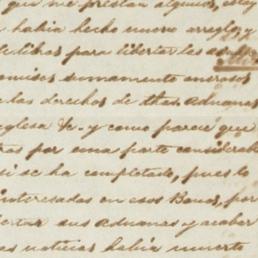 que me prestan algunos, estoy
habia hecho nuevo arreglo, y
libras para libertar les
sumamente onerosos
los derechos de thas. Aduanas
glesa &c. y como parece que
ras por una parte considerab
si se ha completado, pues lo
interesadas en esos Bonos, por
ertar sus Aduanas y acabar
as noticias habia muerto